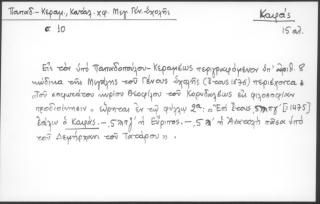 Παπαδ.-Κεραμ., Κατάλ. χφ. Μεγ. Γέν. σχολῆς Καφᾶς
σ 10 15 αἰ.
Εἰς τὸν ὑπὸ Παπαδοπούλου-Κεραμέως περιγραφόμενον ὑπ' ἀριθ. 8
κώδικα τῆς Μεγάλης τοῦ Γένους σχολῆς (ἔτους 1676) περιέχοντα «
Τοῦ σοφωτάτου κυρίου Θεοφίλου τοῦ Κορυδαλέως εἰς φιλοσοφίαν
προδιοίκησιν» εὕρηται ἐν τῷ φύλλῳ 2α: «Ἐπὶ ἔτους [1475]
ἑάλω ὁ Καφᾶς. — ἡ Εὔριπος. — ἡ Ἀνατολὴ πᾶσα ὑπὸ
τοῦ Δεμηρχάνι τοῦ Τατάρου».